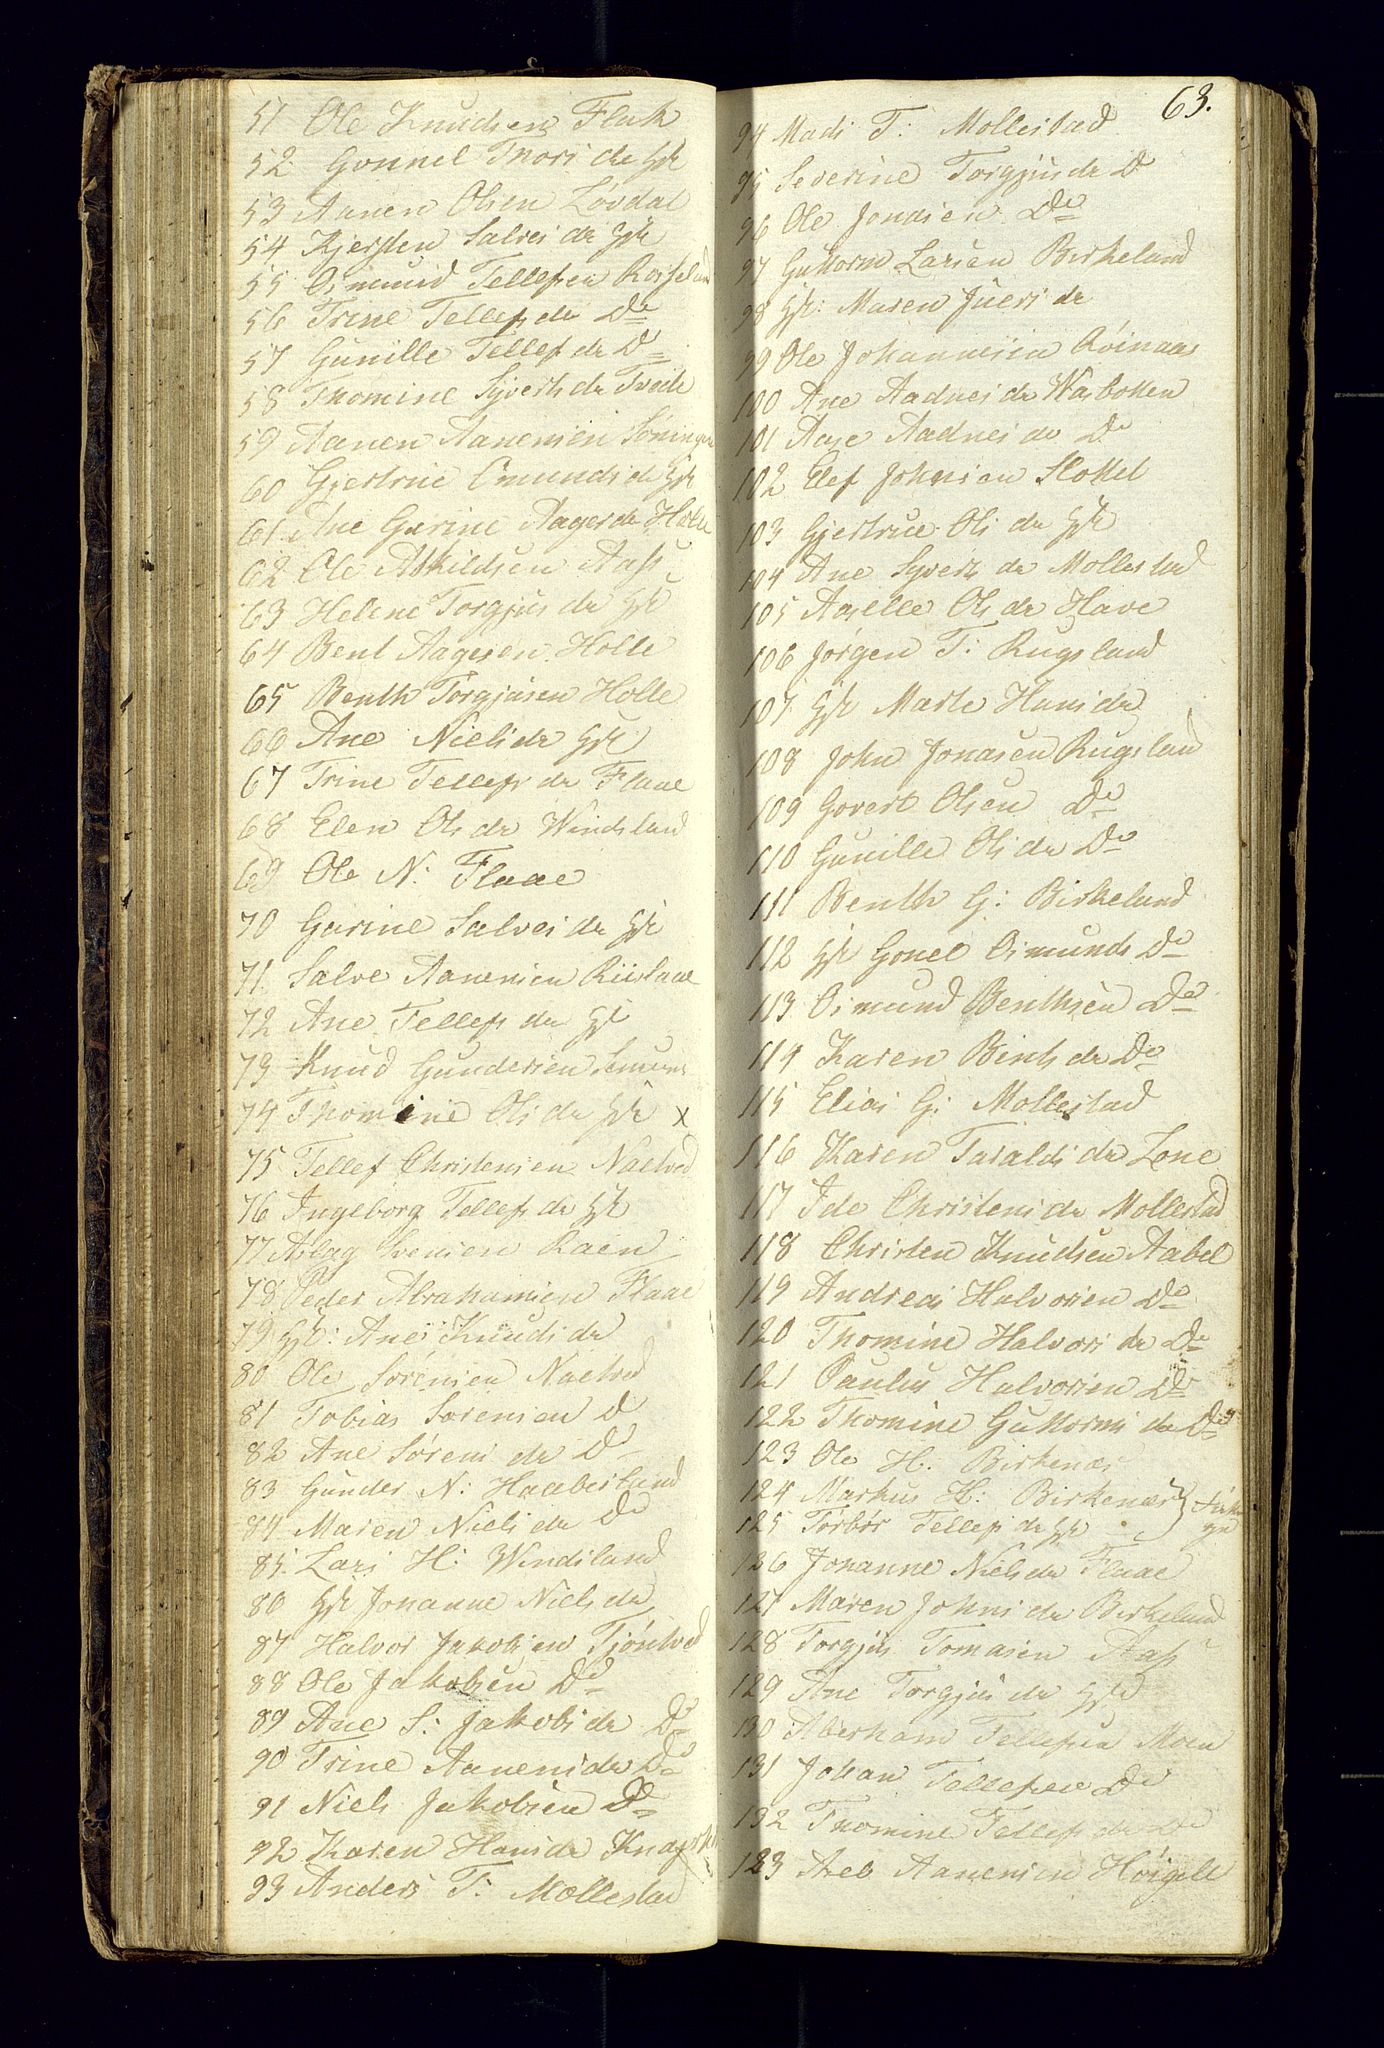 51 Ole Knudsen Flak
52 Gonnel Thors dr Hst
53 Aanen Olsen Løvdal
54 Kjersten Salves dr Hst
55 Osmund Tellefsen Rosseland
56 Trine Tellefs dr Do
57 Gunille Tellefs dr Do
58 Thomine Syverts dr Tveide
59 Aanen Aanensen
60 Gjertrue Omunds dr Hst
61 Ane Gurine Aages dr Holle
62 Ole Askildsen Aass
63 Helene Torgjus dr Hst
64 Bent Aagesen Holle
65 Benth Torgjusen Holle
66 Ane Niels dr Hst
67 Trine Tellefs dr Flaae
68 Elen Ols dr Windsland
69 Ole N: Flaae
70 Gurine Salves dr Hst
71 Salve Aanensen Riislaae
72 Ane Tellefs dr Hst
73 Knud Gundersen
74 Thomine Ols dr Hst x
75 Tellef Christensen Naetved
76 Ingeborg Tellefs dr Hst
77 Aslag Svensen Raen
78 Peder Abrahamsen Flaae
79 Hst: Anes Knuds dr
80 Ole Sørensen Naetved
81 Tobias Sørensen Do
82 Ane Sørens dr Do
83 Gunder N: Haabesland
84 Maren Niels dr Do
85 Lars H: Windsland
86 Hst Johanne Niels dr
87 Halvor Jakobsen Tjøntved
88 Ole Jakobsen Do
89 Ane S: Jakobs dr Do
90 Trine Aanens dr Do
91 Niels Jakobsen Do
92 Karen Hans dr
93 Anders T: Mollestad
63.
94 Mads T: Mollestad
95 Severine Torgjus dr Do
96 Ole Jonasen Do
97 Guttorm Larsen Birkeland
98 Hst: Maren Juers dr
99 Ole Johannesen Røinaas
100 Ane Aadnes dr Wasbotten
101 Aase Aadnes dr Do
102 Elef Johnsen Slottet
103 Gjertrue Ols dr Hst
104 Ane Syverts dr Mollestad
105 Aaselle Ols dr Have
106 Jørgen T: Rugsland
107 Hst Marte Hans dr
108 John Jonasen Rugsland
109 Govert Olsen Do
110 Gunille Ols dr Do
111 Benth G: Birkeland
112 Hst Gonel Osmunds Do
113 Osmund Benthsen Do
114 Karen Bents dr Do
115 Elias G: Mollestad
116 Karen Taralds dr Lone
117 Ide Christens dr Mollestad
118 Christen Knudsen Aabel
119 Andreas Halvorsen Do
120 Thomine Halvors dr Do
121 Paulus Halvorsen Do
122 Thomine Guttorms dr Do
123 Ole H: Birkenæs
124 Markus H: Birkenæs
125 Torbør Tellefs dr Hst
126 Johanne Niels dr Flaae
127 Maren Johns dr Birkeland
128 Torgjus Tomasen Aass
129 Ane Torgjus dr Hst
130 Aberham Tellefsen Moen
131 Johan Tellefsen Do
132 Thomine Tellefs dr Do
123 Aanensen Høigilt